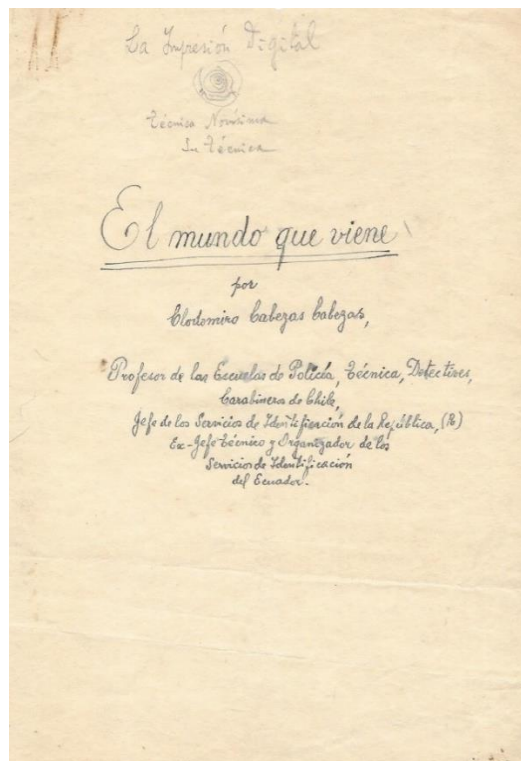 La Impresión Digital
Técnica Novísima
Su Técnica
El mundo que viene
por
Clodomiro Cabezas Cabezas,
Profesor de las Escuelas de Policía, Técnica, Detectives,
Carabineros de Chile,
Jefe de los Servicios de Identificación de la República, (R)
Ex-Jefe técnico y Organizador de los
Servicios de Identificación
del Ecuador.